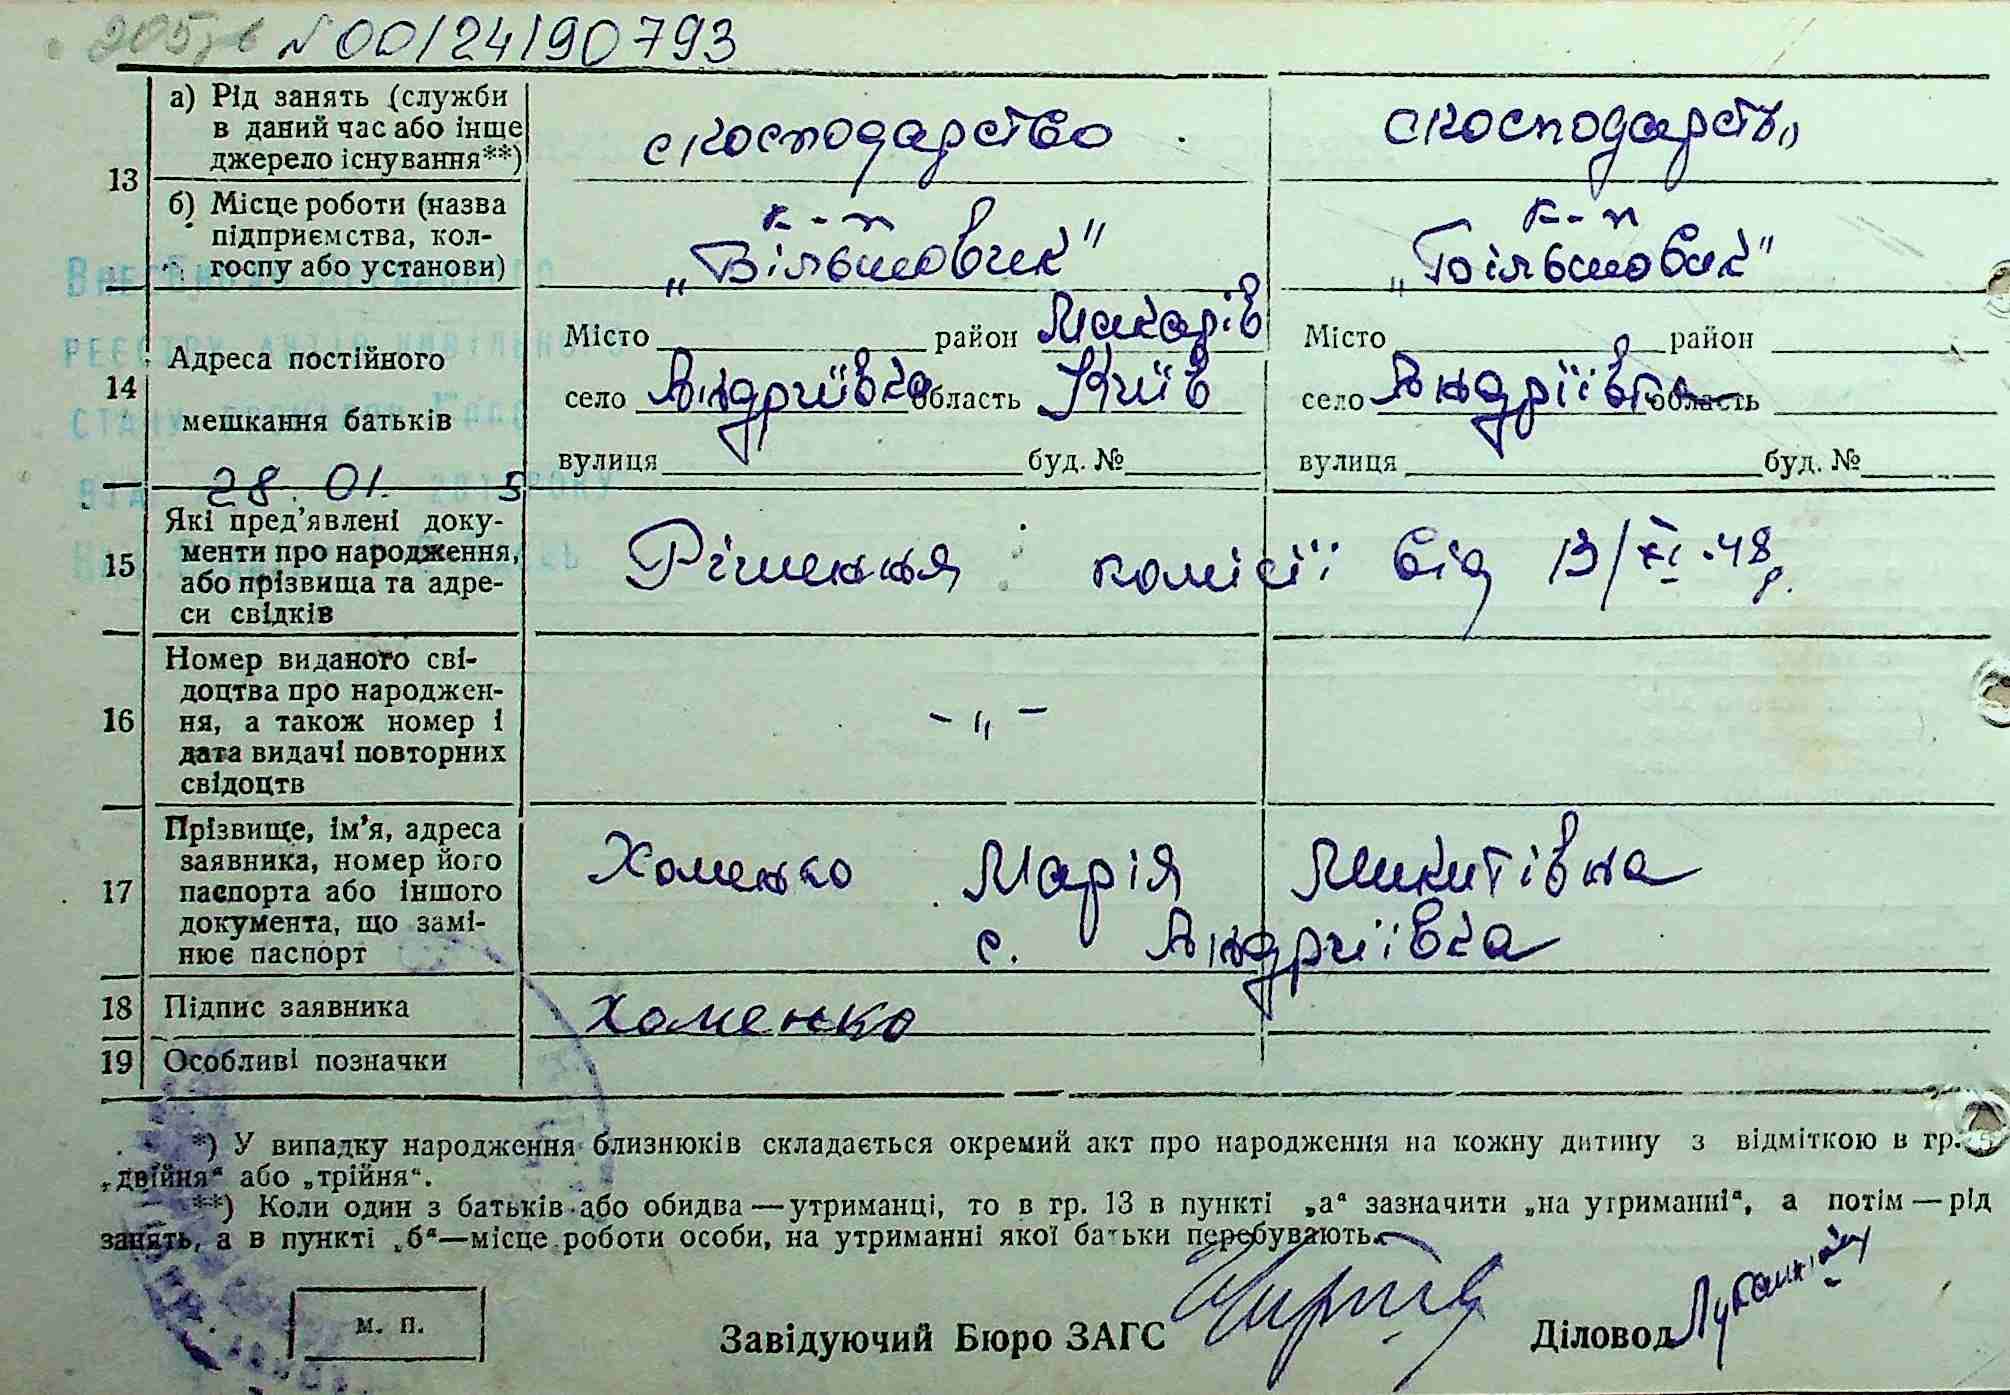 N 00/24/90793
13
а) Рід занять (служби в даний час або інше джерело існування**)
с косподарство
с косподарств
б) Місце роботи (назва підприємства, колгоспу або установи)
к-п „Більшовик"
к-п „Більшовик"
14
Адреса постійного мешкання батьків
Місто район Макарів
село Андріївка область Київ
вулиця буд. №
Місто район
село Андріївка область
вулиця буд. №
28 01 5
15
Які пред'явлені документи про народження, або прізвища та адреси свідків
Рішення комісії від 13/XI.48 р.
16
Номер виданого свідоцтва про народження, а також номер і дата видачі повторних свідоцтв
- „ -
17
Прізвище, ім'я, адреса заявника, номер його паспорта або іншого документа, що замінює паспорт
Хоменко Марія Микитівна
с. Андріївка
18
Підпис заявника
Хоменко
19
Особливі позначки
*) У випадку народження близнюків складається окремий акт про народження на кожну дитину з відміткою в гр. 5
„двійня" або „трійня".
**) Коли один з батьків або обидва—утриманці, то в гр. 13 в пункті „а" зазначити „на утриманні", а потім—рід
занять, а в пункті „б"—місце роботи особи, на утриманні якої батьки перебувають.
м. п.
Завідуючий Бюро ЗАГС
Діловод